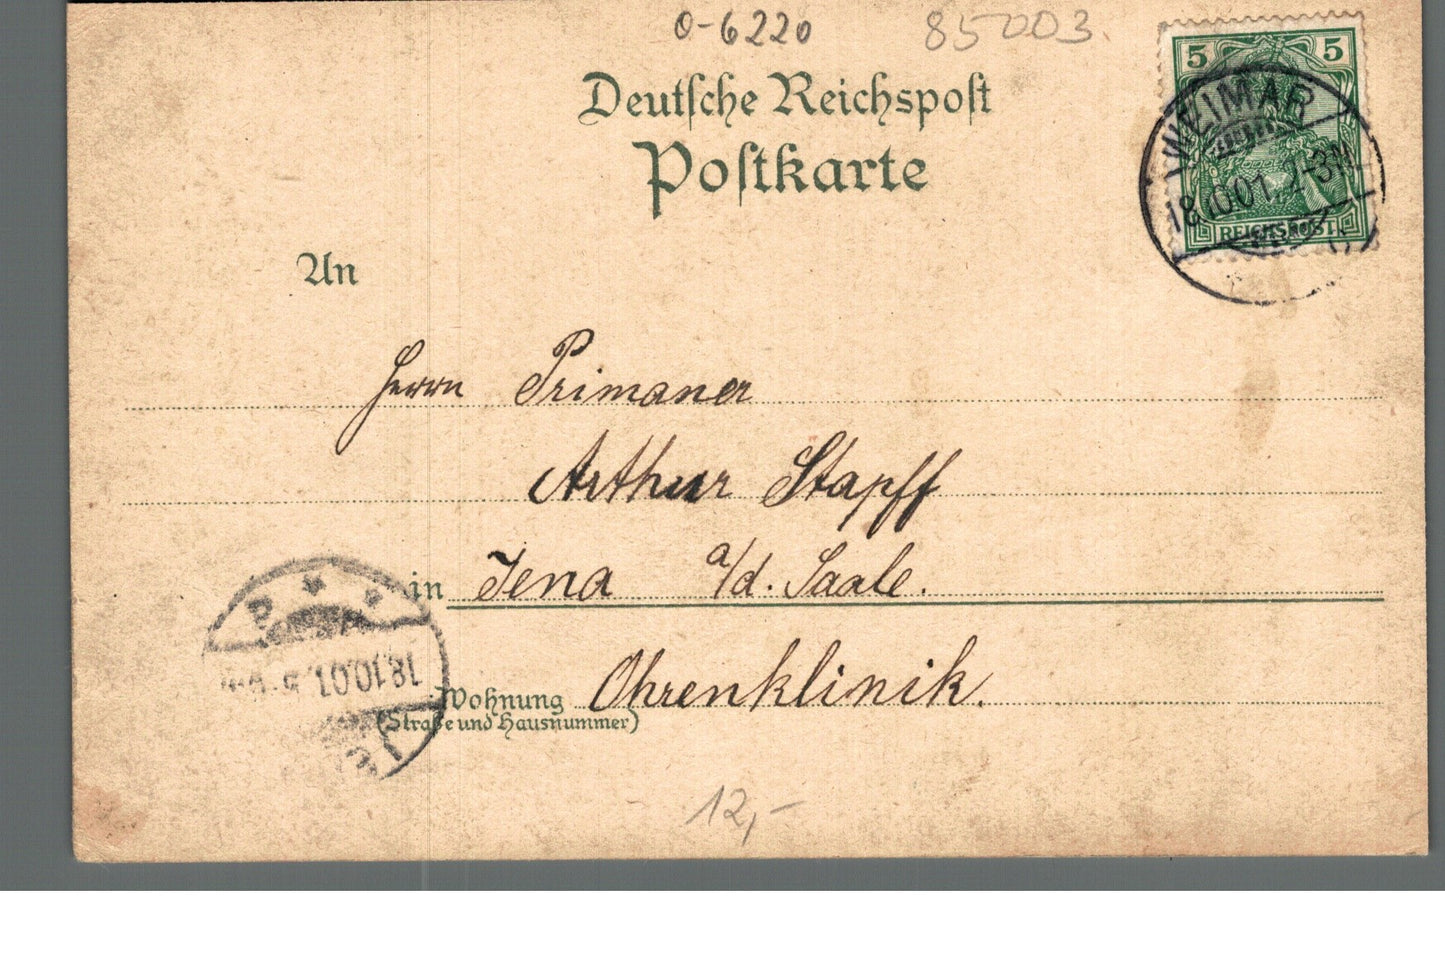 0-6220 85003
Deutsche Reichspost
Postkarte
5 5
WEIMAR
18.10.01. 1-3N
REICHSPOST
An
Herrn Primaner
Arthur Stapff
in Jena a/d. Saale.
18.10.01.
Wohnung Ohrenklinik.
(Straße und Hausnummer)
12,-